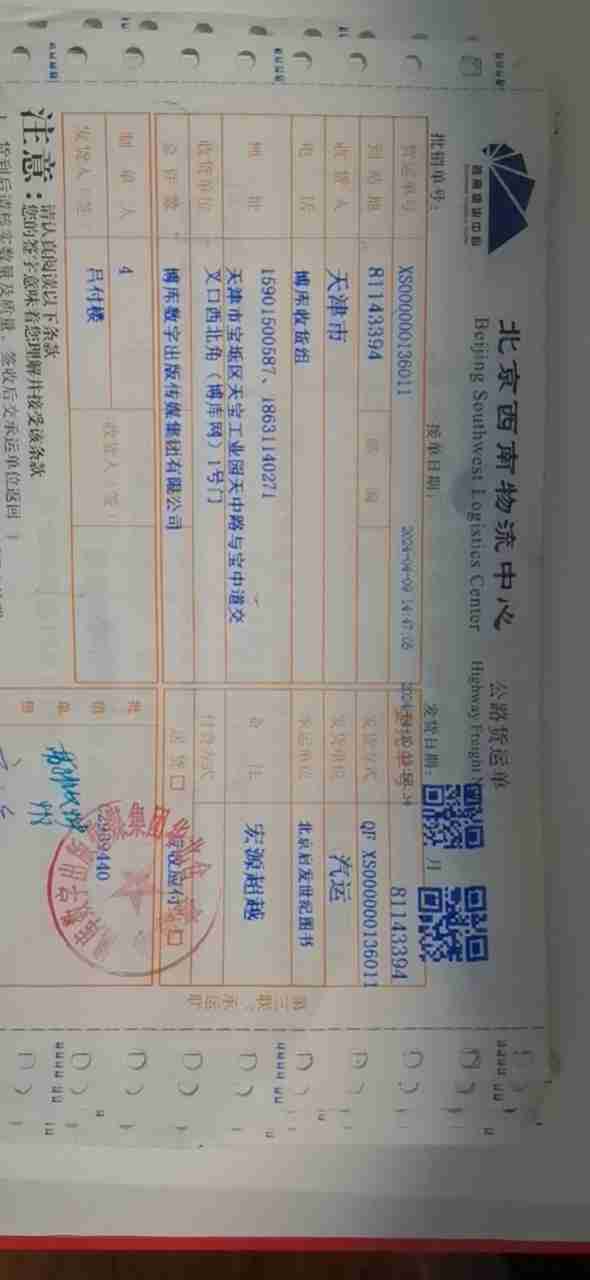 西南物流中心
北京西南物流中心
公路货运单
Beijing Southwest Logistics Center
Highway Freight
批销单号：
接单日期：
2024-04-09 14:47:05
发货日期：
月
货运单号
XS000000136011
81143394
到站地
81143394
邮编
发货方式
QF XS000000136011
收货人
天津市
发货单位
汽运
电话
博库收货组
承运单位
北京启发世纪图书
地址
15901500587、18631140271
天津市宝坻区天宝工业园天中路与宝中道交
叉口西北角（博库网）1号门
备注
宏源超越
收货单位
付费方式
总件数
博库数字出版传媒集团有限公司
送货口
应收应付
制单人
4
收货人（签）
2989440
发货人（签）
吕付楼
批销单
第三联：承运联
注意：
请认真阅读以下条款
您的签字意味着您理解并接受该条款
货到后请核实数量及质量，签收后交承运单位返回